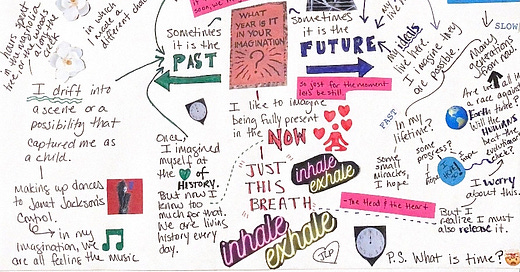 soon, we hi
hours spent
in this magnolia
in which
I wrote a
different cha
Sometimes
it is the
PAST
WHAT
YEAR IS IT
IN YOUR
IMAGINATION
?
sometimes
it is the
FUTURE
So just for the moment
let's be still.
My ideals
live here.
I imagine they
are possible.
Many
generations
from now.
SLOW
I drift into
a scene or a
possibility that
captured me as
a child.
Making up dances
to Janet Jackson's
Control.
in my
imagination, we
are all feeling the music
Once,
I imagined
myself at
the
of
HISTORY.
But now I
know too
much for that.
We are living
history every
day.
I like to imagine
being fully present
in the NOW
JUST
THIS
BREATH
inhale
exhale
inhale
exhale
- The Head & the Heart
JLP
FAST
In my
lifetime?
some
progress?
I hope
I hope
Some
small
miracles,
I hope.
Are we all in
a race against
Earth time?
Will the
HUMANS
beat the
evolutionary
clock?
I worry
about this.
But I
realize I must
also release it.
P.S. What is time?